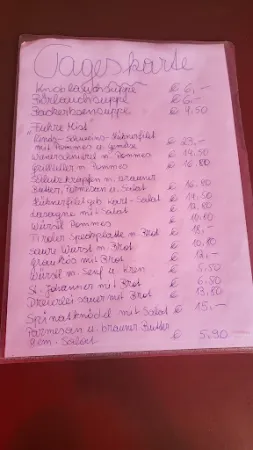 Tageskarte
Knoblauchsuppe € 6,-
Bärlauchsuppe € 6,-
Backerbsensuppe € 4,50
"Fuhre Mist"
Rinds-Schweins-Hühnerfilet
mit Pommes u. Gemüse € 23,-
Wienerschnitzel m. Pommes € 14,50
Grillteller m. Pommes € 16,80
Schlutzkrapfen m. brauner
Butter, Parmesan u. Salat € 16,80
Hühnerfilet geb. Kart-Salat € 14,50
Lasagne mit Salat € 12,80
Würstl Pommes € 10,10
Tiroler Speckplatte m. Brot € 15,-
saure Wurst m. Brot € 10,80
Graukäs mit Brot € 12,-
Würstl m. Senf u. Kren € 5,50
St. Johanner mit Brot € 6,50
Dreierlei sauer mit Brot € 13,80
Spinatknödel mit Salat € 15,-
Parmesan u. brauner Butter
gem. Salat € 5,90